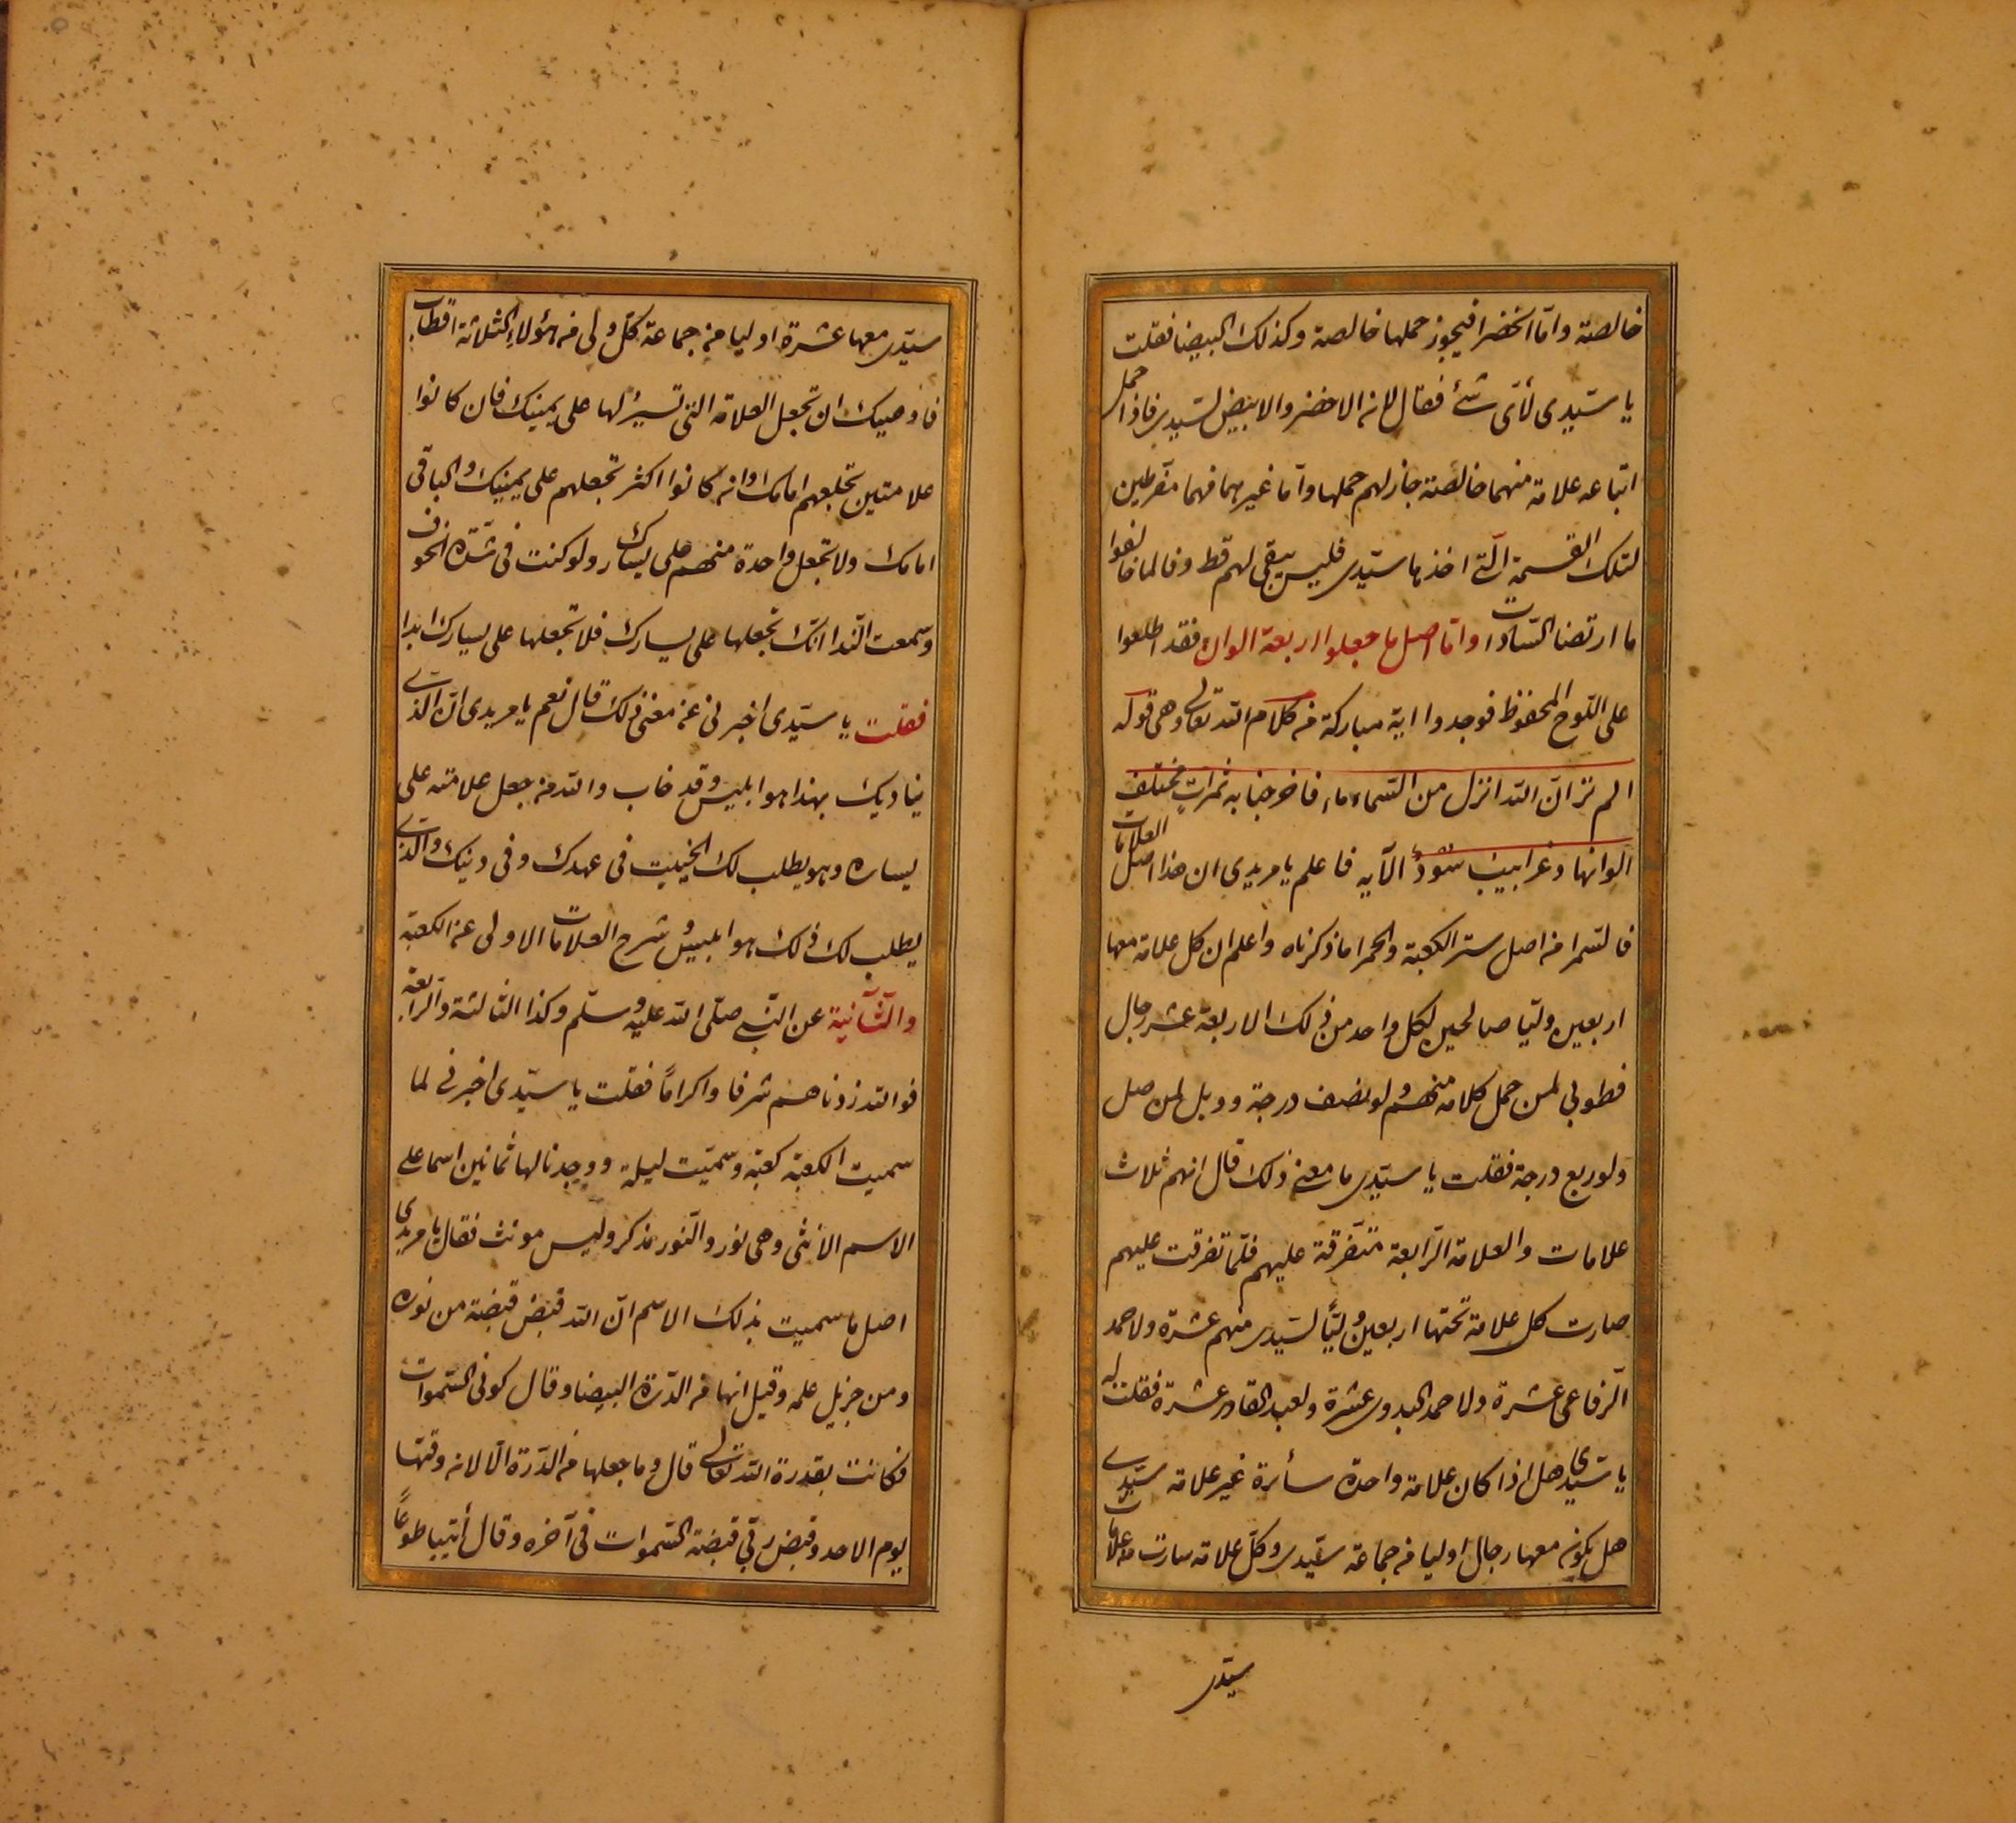 خالصة وامّا الخضرا فيجوز حملها خالصة وكذلك البيضا فقلت
يا سيّدى لأىّ شئ فقال لانه الاخضر والابيض لسيّدى فاذا حمل
اتباعه علامة منهما خالصة جاز لهم حملها وامّا غيرهما فهما متفرطين
لتلك القسمة الّتى اخذها سيّدى فليس يبقى لهم قط وفالما خالفوا
ما ارتضا السّادات وامّا اصل ما جعلوا اربعة الوان فقد اطلعوا
على اللّوح المحفوظ فوجدوا اية مباركة من كلام الله تعالى وهى قوله
الم تر انّ الله انزل من السّماء ماء فاخرجنا به ثمرات مختلف
الوانها وغرابيب سود الآيه فاعلم يا مريدى ان هذا اصل العلامات
فالسّمرا من اصل ستر الكعبة والحمرا ما ذكرناه واعلم ان كل علامة معها
اربعين وليّا صالحين لكل واحد من ذلك الاربعة عشر رجال
فطوبى لمن حمل كلامه منهم ولو نصف درجة وويل لمن صل
ولو ربع درجة فقلت يا سيّدى ما معنى ذلك قال انهم ثلاث
علامات والعلامة الرّابعة متفرّقة عليهم فلمّا تفرقت عليهم
صارت كل علامة تحتها اربعين وليّاً لسيّدى منهم عشرة ولاحمد
الرّفاعى عشرة ولاحمد البدوى عشرة ولعبد القادر عشرة فقلت له
يا سيّدى هل اذا كان علامة واحدة سأرة غير علامة سيّدى
هل يكونه معها رجال اوليا من جماعة سيّدى وكلّ علامة سارت من علامات
سيّدى
سيّدى معها عشرة اوليا من جماعة كلّ ولى من هؤلاء الثلاثة اقطاب
فاوصيك ان تجعل العلامة التى تسيرُ لها على يمينك فان كانوا
علامتين تجلعهم امامك وانه كانوا اكثر تجعلهم على يمينك والباقى
امامك ولا تجعل واحدة منهم على يسارك ولو كنت فى شدّة الخوف
وسمعت النّدا انّك تجعلها على يسارك فلا تجعلها على يسارك ابدا
فقلت يا سيّدى اخبرنى عن معنى ذلك قال نعم يا مريدى انّ الّذى
يناديك بهذا هو ابليس وقد خاب والله من جعل علامته على
يساره وهو يطلب لك الخيبت فى عهدك وفى دينك والّذى
يطلب لك ذلك هو ابليس وشرح العلامات الاولى عن الكعبة
والثّانية عن النّبى صلّى الله عليه وسلّم وكذا الثّالثة والرّابعة
فوالله زدناهم شرفا واكراماً فقلت يا سيّدى اخبرنى لما
سميت الكعبة كعبة وسميّت ليلة ووجدنا لها ثمانين اسما على
الاسم الانثى وهى نور والنّور مذكر وليس مونث فقال يا مريدى
اصل ما سميت بذلك الاسم انّ الله قبض قبضة من نوره
ومن جزيل علمه وقيل انها من الدّرة البيضا وقال كونى السّموات
فكانت بقدرة الله تعالى قال وما جعلها من الدّرة الّا لانه وقتها
يوم الاحد وقبض ربّى قبضة السّموات فى آخره وقال أتيا طوعاً